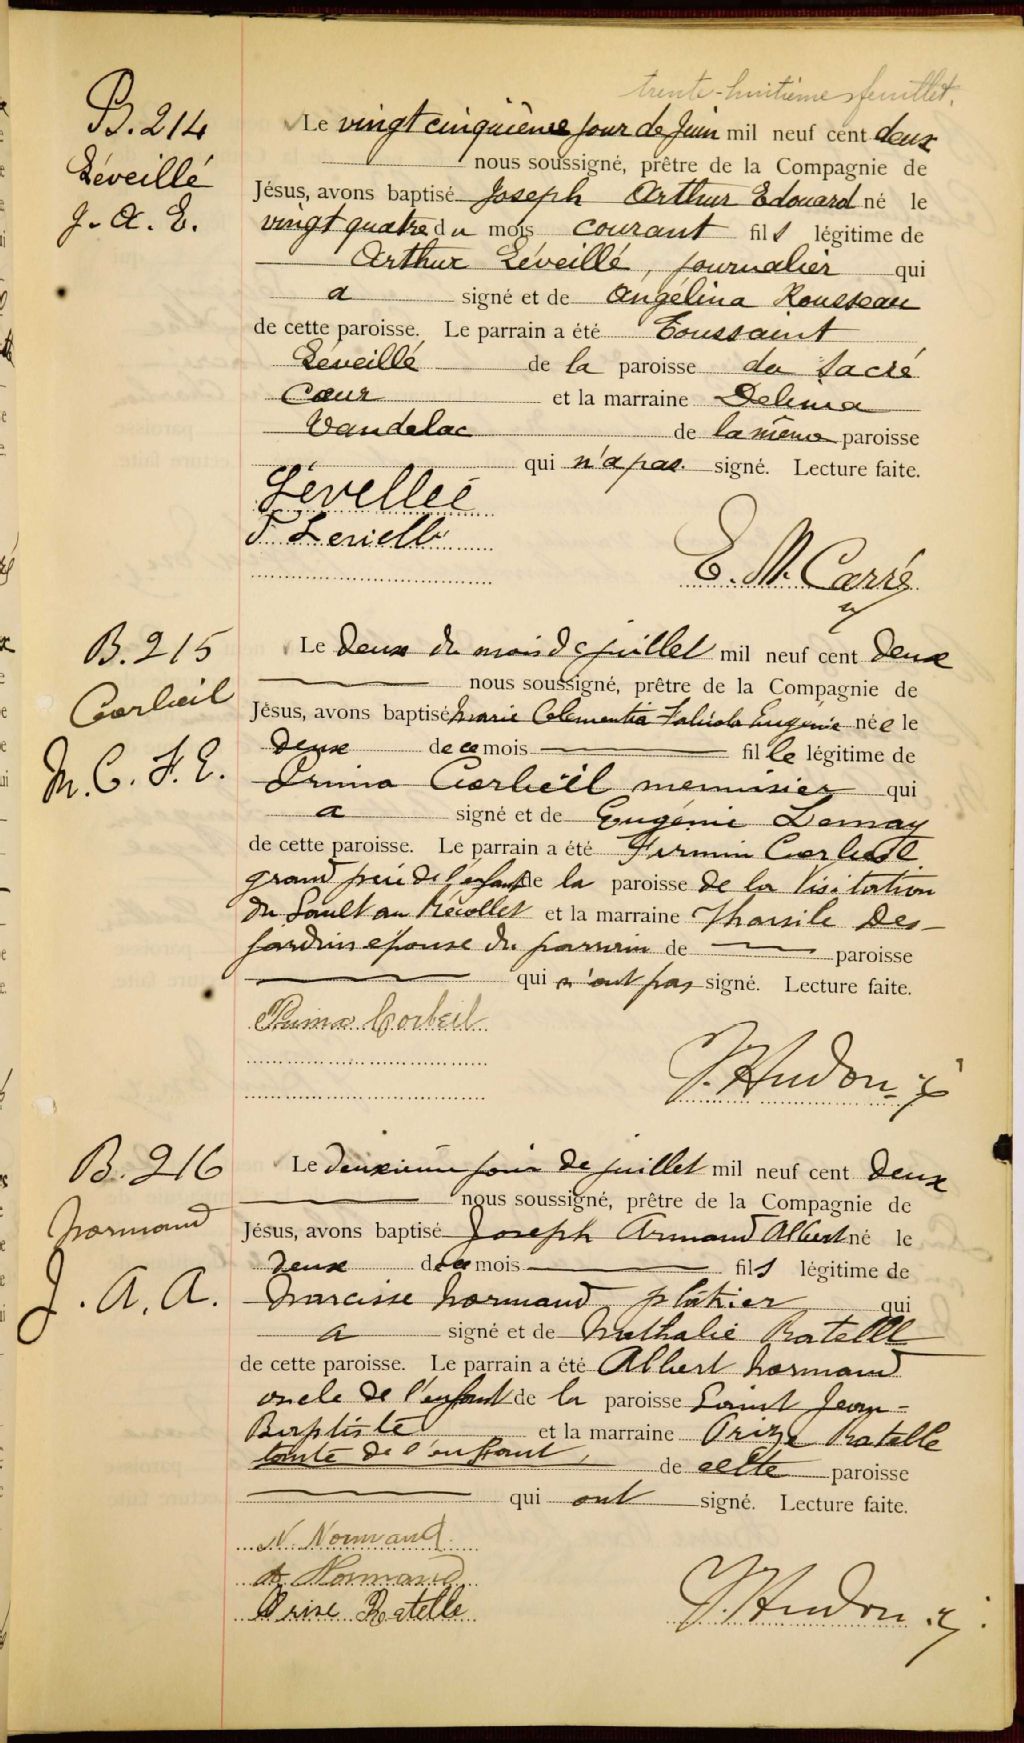 trente-huitième feuillet.
B. 214
Léveillé
J. A. E.
Le vingt cinquième jour de Juin mil neuf cent deux
nous soussigné, prêtre de la Compagnie de
Jésus, avons baptisé Joseph Arthur Edouard né le
vingt quatre du mois courant fils légitime de
Arthur Léveillé, journalier qui
a signé et de Angélina Rousseau
de cette paroisse. Le parrain a été Toussaint
Léveillé de la paroisse du Sacré
Cœur et la marraine Delima
Vandelac de la même paroisse
qui n'a pas signé. Lecture faite.
Lévelleé
T Leveille
E. M. Carré
B. 215
Corbeil
M. C. F. E.
Le deux du mois de juillet mil neuf cent deux
nous soussigné, prêtre de la Compagnie de
Jésus, avons baptisé Marie Clementia Eugénie née le
deux de ce mois fille légitime de
Prima Corbeil menuisier qui
a signé et de Eugénie Lemay
de cette paroisse. Le parrain a été Firmin Corbeil
grand père de l'enfant de la paroisse de la Visitation
du Sault au Recollet et la marraine Tharsile Des-
jardins épouse du parrain de paroisse
qui n'ont pas signé. Lecture faite.
Prima Corbeil
J. Hudon
B. 216
Normand
J. A. A.
Le deuxième jour de juillet mil neuf cent deux
nous soussigné, prêtre de la Compagnie de
Jésus, avons baptisé Joseph Armand Albert né le
deux de ce mois fils légitime de
Narcisse Normand plâtrier qui
a signé et de Nathalie Ratelle
de cette paroisse. Le parrain a été Albert Normand
oncle de l'enfant de la paroisse Saint Jean-
Baptiste et la marraine Orize Ratelle
tante de l'enfant, de cette paroisse
qui ont signé. Lecture faite.
N. Normand
A Normand
Orise Ratelle
J. Hudon s.j.